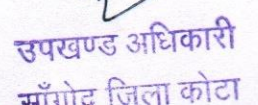 उपखण्ड अधिकारी
साँगोद जिला कोटा